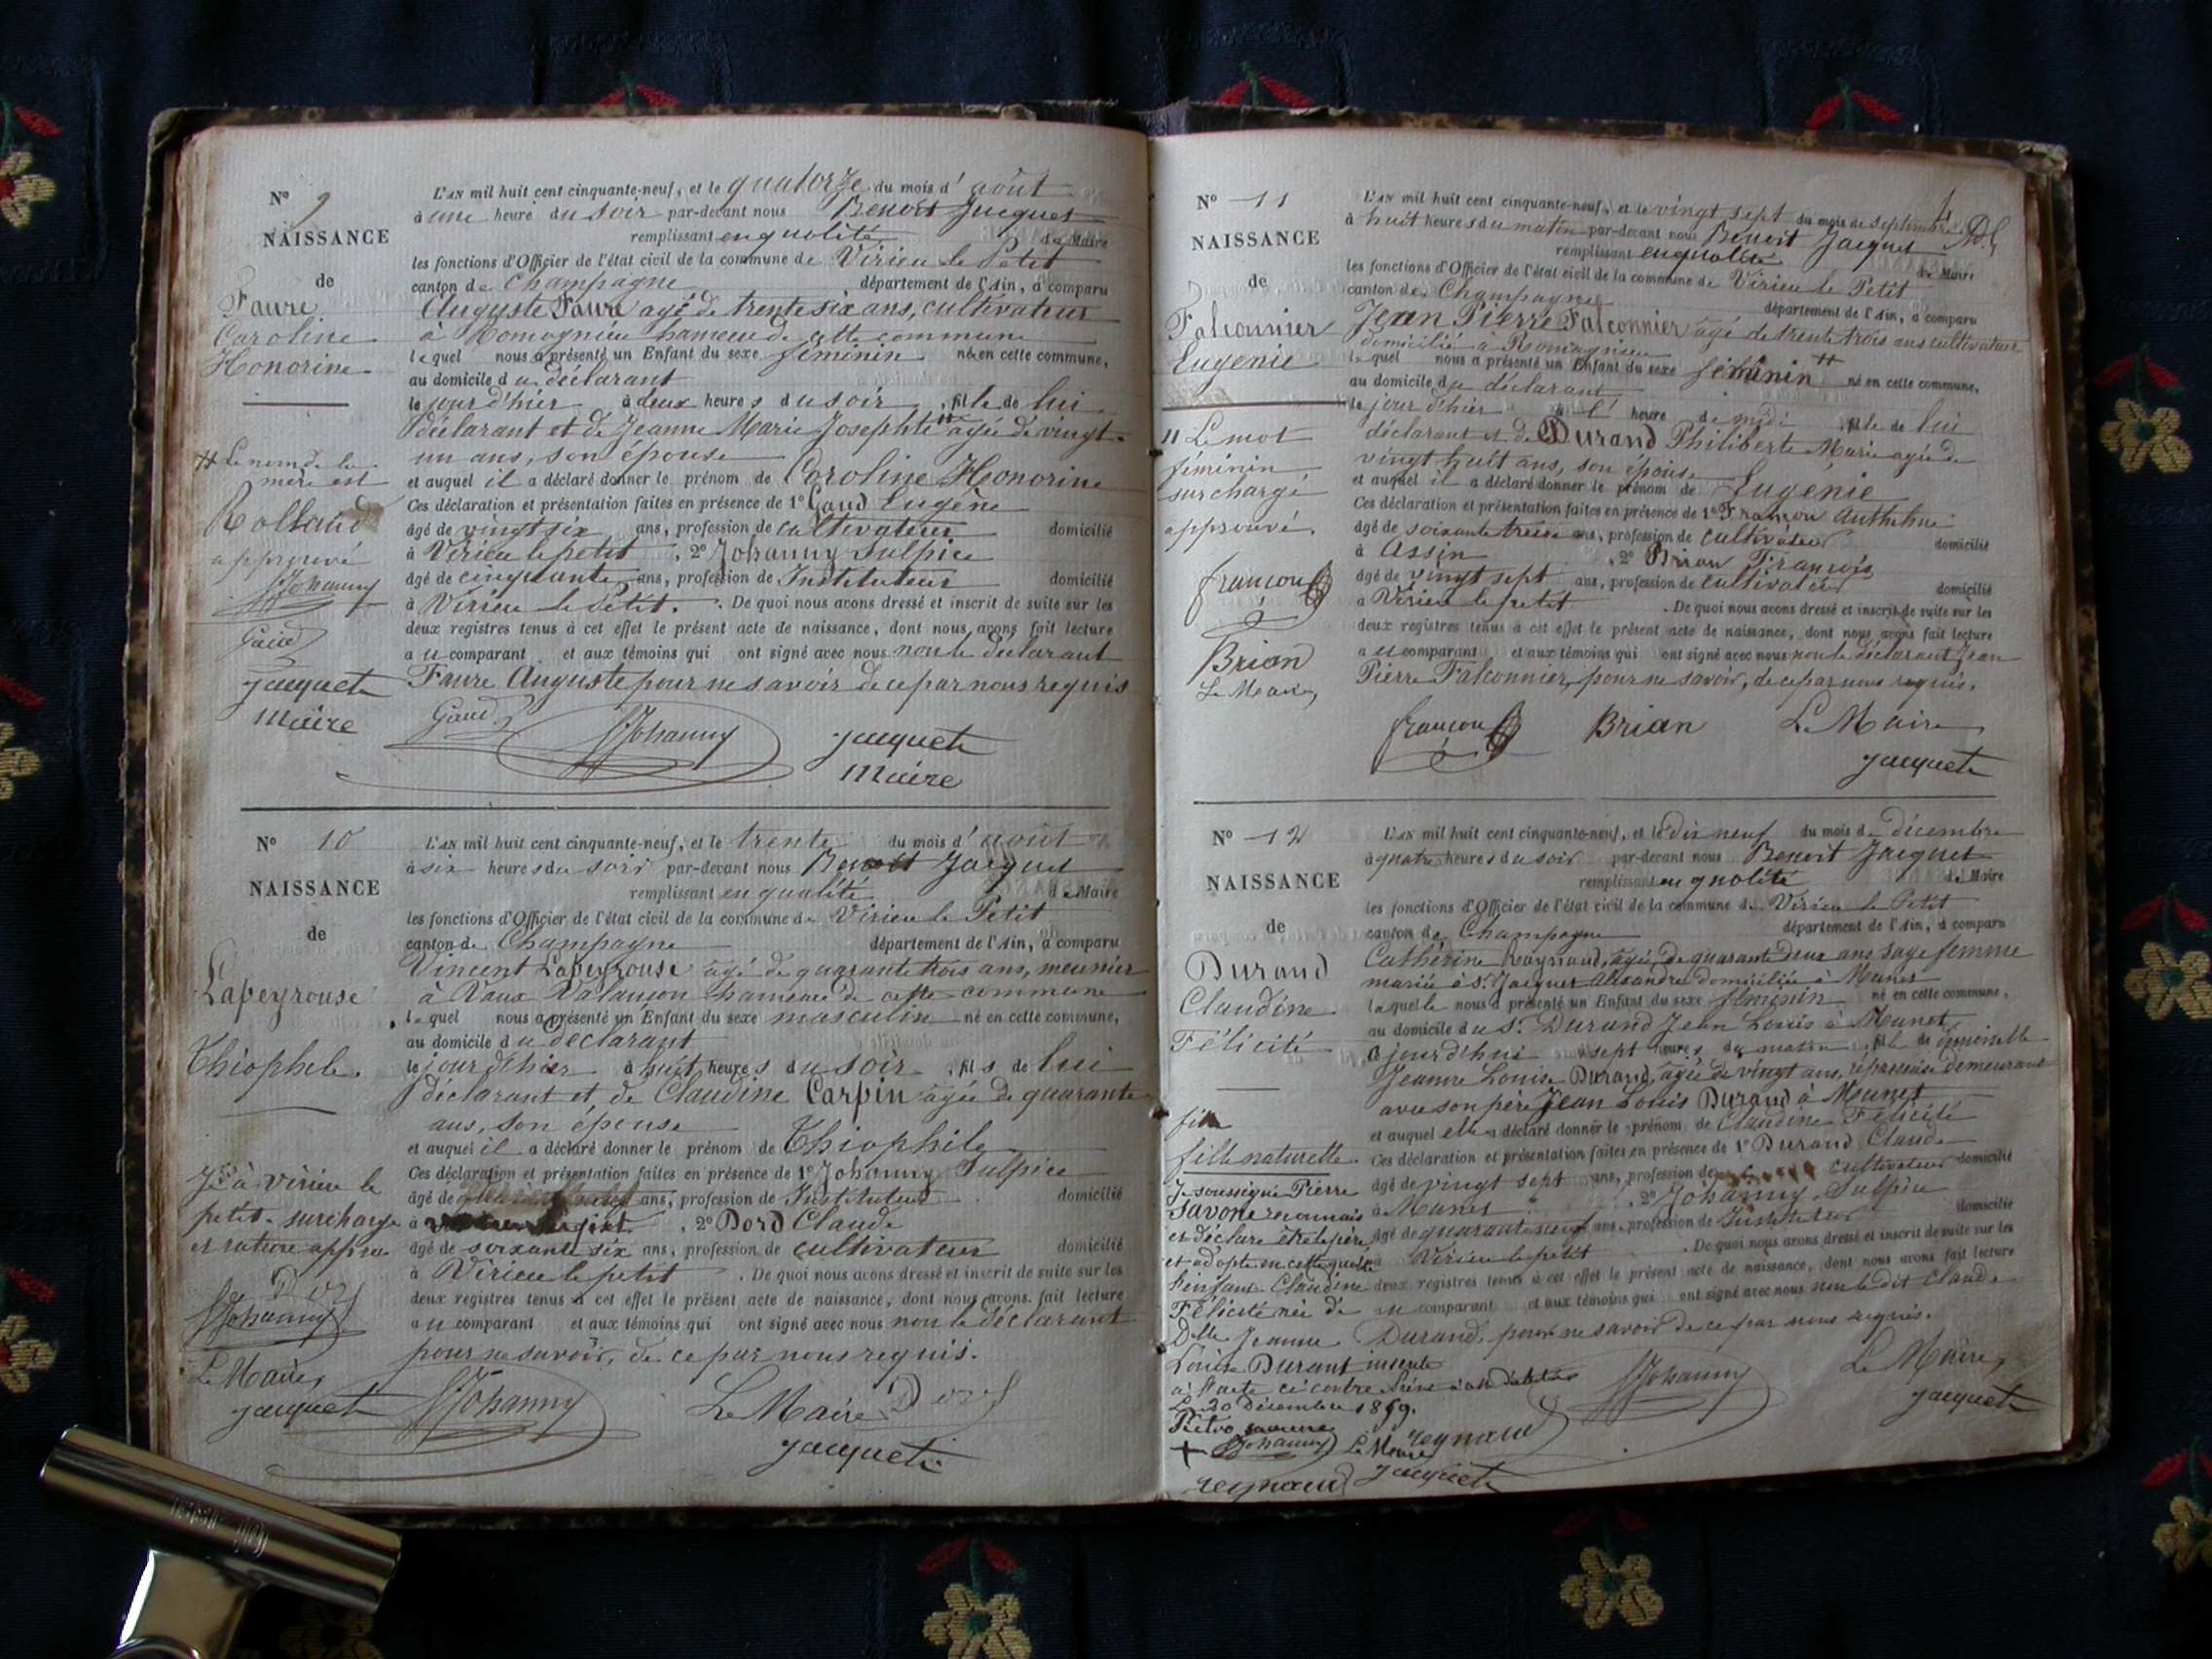 N° 9
NAISSANCE
de
Faure
Caroline
Honorine
L'AN mil huit cent cinquante-neuf, et le quatorze du mois d'août
à une heure du soir par-devant nous Benoit Jacquet
remplissant en qualité de Maire
les fonctions d'Officier de l'état civil de la commune de Virieu le Petit
canton de Champagne département de l'Ain, a comparu
Auguste Faure agé de trente six ans, cultivateur
à Romagnieu hameau de cette commune
lequel nous a présenté un Enfant du sexe féminin né en cette commune,
au domicile du déclarant
le jour d'hier à deux heures du soir, fille de lui
déclarant et de Jeanne Marie Josephte # agée de vingt
un ans, son épouse
et auquel il a déclaré donner le prénom de Caroline Honorine
Ces déclaration et présentation faites en présence de 1° Gaud Eugène
âgé de vingt six ans, profession de cultivateur domicilié
à Virieu le petit, 2° Johanny Sulpice
âgé de cinquante ans, profession de Instituteur domicilié
à Virieu le Petit. De quoi nous avons dressé et inscrit de suite sur les
deux registres tenus à cet effet le présent acte de naissance, dont nous avons fait lecture
au comparant et aux témoins qui ont signé avec nous non le déclarant
Faure Auguste pour ne savoir de ce par nous requis
# Le nom de la
mère est
Rolland
approuvé
Johanny
Gaud
jacquet
maire
Gaud Johanny jacquet
maire
N° 10
NAISSANCE
de
Lapeyrouse
Thiophile
L'AN mil huit cent cinquante-neuf, et le trente du mois d'août
à six heures du soir par-devant nous Benoit Jacquet
remplissant en qualité de Maire
les fonctions d'Officier de l'état civil de la commune de Virieu le Petit
canton de Champagne département de l'Ain, a comparu
Vincent Lapeyrouse agé de quarante trois ans, meunier
à Vaux Valançon hameau de cette commune
lequel nous a présenté un Enfant du sexe masculin né en cette commune,
au domicile du déclarant
le jour d'hier à huit heures du soir, fils de lui
déclarant et de Claudine Carpin agée de quarante
ans, son épouse
et auquel il a déclaré donner le prénom de Thiophile
Ces déclaration et présentation faites en présence de 1° Johanny Sulpice
âgé de ans, profession de Instituteur domicilié
à, 2° Dord Claude
âgé de soixante six ans, profession de cultivateur domicilié
à Virieu le petit. De quoi nous avons dressé et inscrit de suite sur les
deux registres tenus à cet effet le présent acte de naissance, dont nous avons fait lecture
au comparant et aux témoins qui ont signé avec nous non le déclarant
pour ne savoir, de ce par nous requis.
à virieu le
petit. surcharge
et rature appr
Dord
Johanny
Le Maire,
jacquet
Johanny Le Maire Dord
jacquet
N° 11
NAISSANCE
de
Falconnier
Eugenie
4
L'AN mil huit cent cinquante-neuf, et le vingt sept du mois de septembre
à huit heures du matin par-devant nous Benoit Jacquet
remplissant en qualité de Maire
les fonctions d'Officier de l'état civil de la commune de Virieu le Petit
canton de Champagne département de l'Ain, a comparu
Jean Pierre Falconnier agé de trente trois ans cultivateur
domicilié à Romagnieu
lequel nous a présenté un Enfant du sexe féminin # né en cette commune,
au domicile du déclarant
le jour d'hier à l' heure de midi, fille de lui
déclarant et de Durand Philiberte Marie agée de
vingt huit ans, son épouse
et auquel il a déclaré donner le prénom de Eugénie
Ces déclaration et présentation faites en présence de 1° Françon Anthelme
âgé de soixante treize ans, profession de cultivateur domicilié
à Assin, 2° Brian François
âgé de vingt sept ans, profession de cultivateur domicilié
à Virieu le petit. De quoi nous avons dressé et inscrit de suite sur les
deux registres tenus à cet effet le présent acte de naissance, dont nous avons fait lecture
au comparant et aux témoins qui ont signé avec nous non le déclarant Jean
Pierre Falconnier, pour ne savoir, de ce par nous requis.
# Le mot
féminin
surchargé
approuvé.
françon
Brian
Le Maire,
françon Brian Le Maire
jacquet
N° 12
NAISSANCE
de
Durand
Claudine
Félicité
L'AN mil huit cent cinquante-neuf, et le dix neuf du mois de décembre
à quatre heures du soir par-devant nous Benoit Jacquet
remplissant en qualité de Maire
les fonctions d'Officier de l'état civil de la commune de Virieu le Petit
canton de Champagne département de l'Ain, a comparu
Cathérine Reynaud, agée de quarante deux ans sage femme
mariée à Sr. Jacques Alexandre domiciliée à Munet
laquelle nous a présenté un Enfant du sexe féminin né en cette commune,
au domicile du Sr. Durand Jean Louis à Munet
ce jourd'hui à sept heures du matin, fille de demoiselle
Jeanne Louise Durand, agée de vingt ans, répasseuse demeurant
avec son père Jean Louis Durand à Munet
et auquel elle a déclaré donner le prénom de Claudine Félicité
Ces déclaration et présentation faites en présence de 1° Durand Claude
âgé de vingt sept ans, profession de cultivateur domicilié
à Munet, 2° Johanny Sulpice
âgé de quarante neuf ans, profession de Instituteur domicilié
à Virieu le petit. De quoi nous avons dressé et inscrit de suite sur les
deux registres tenus à cet effet le présent acte de naissance, dont nous avons fait lecture
au comparant et aux témoins qui ont signé avec nous non le dit Claude
Durand, pour ne savoir de ce par nous requis.
fille naturelle.
Je soussigné Pierre
Savone reconnais
et déclare être le père
et adopte en cette qualité
l'enfant Claudine
Félicité née de
Dlle Jeanne
Louise Durant inscrite
à l'acte ci contre
Le 20 décembre 1859.
Pietro savone
+ Johanny Le Maire reynaud
reynaud jacquet
Johanny Le Maire,
jacquet